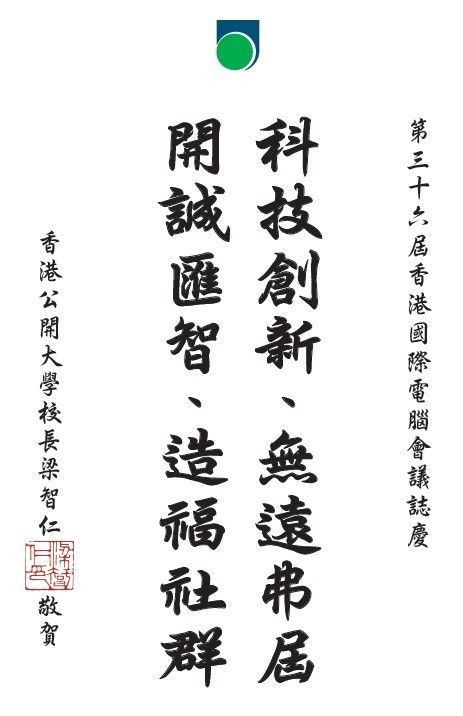 第三十六屆香港國際電腦會議誌慶
科技創新、無遠弗屆
開誠匯智、造福社群
香港公開大學校長梁智仁敬賀